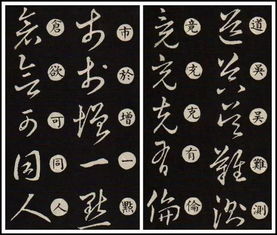 道吳吴難測
竟充充有倫
市於增一點
倉欲可同人